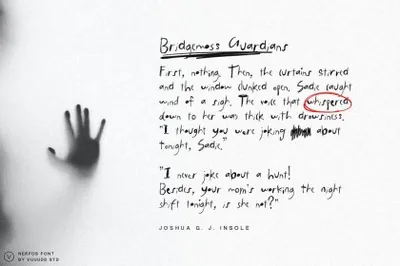 Bridgemoss Guardians
First, nothing. Then, the curtains stirred
and the window clunked open. Sadie caught
wind of a sigh. The voice that whispered
down to her was thick with drowsiness.
"I thought you were joking about
tonight, Sadie."
"I never joke about a hunt!
Besides, your mom's working the night
shift tonight, is she not?"
JOSHUA G. J. INSOLE
NERFOS FONT
BY VUUUDS STD